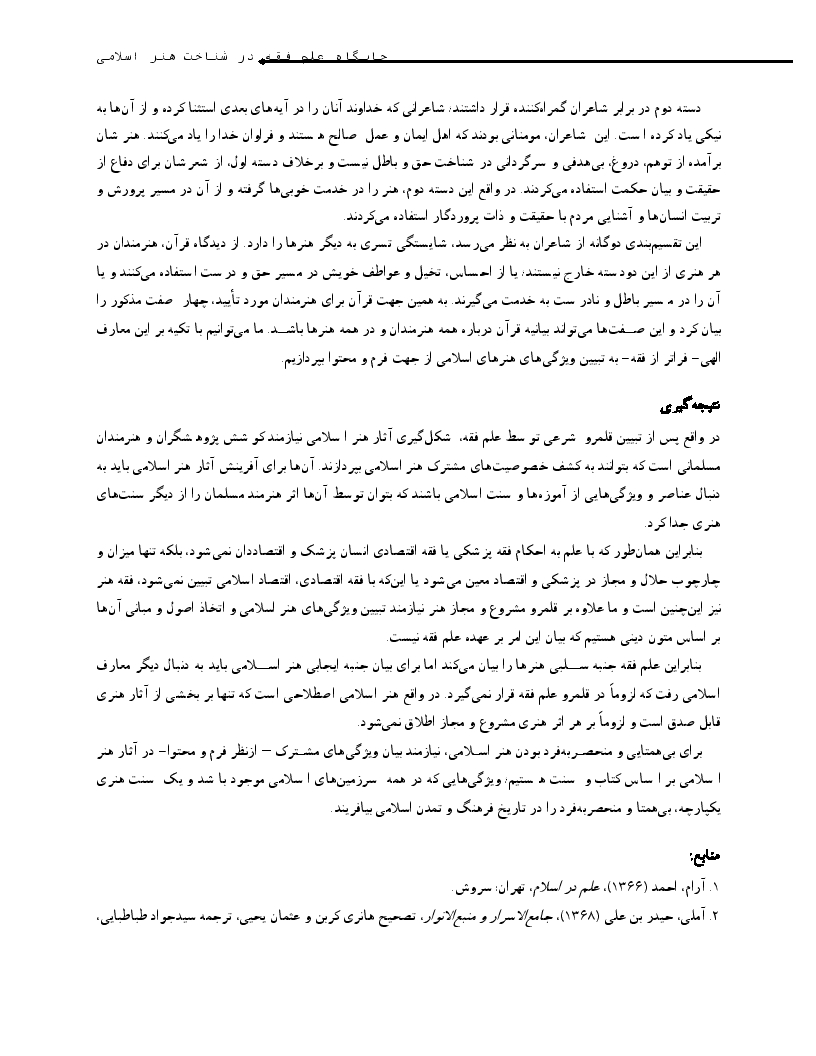 جایگاه علم فقه در شناخت هنر اسلامی
دسته دوم در برابر شاعران گمراه‌کننده قرار داشتند؛ شاعرانی که خداوند آنان را در آیه‌های بعدی استثنا کرده و از آن‌ها به
نیکی یاد کرده است. این شاعران، مومنانی بودند که اهل ایمان و عمل صالح هستند و فراوان خدا را یاد می‌کنند. هنرشان
برآمده از توهم، دروغ، بی‌هدفی و سرگردانی در شناخت حق و باطل نیست و برخلاف دسته اول، از شعرشان برای دفاع از
حقیقت و بیان حکمت استفاده می‌کردند. در واقع این دسته دوم، هنر را در خدمت خوبی‌ها گرفته و از آن در مسیر پرورش و
تربیت انسان‌ها و آشنایی مردم با حقیقت و ذات پروردگار استفاده می‌کردند.
این تقسیم‌بندی دوگانه از شاعران به نظر می‌رسد، شایستگی تسری به دیگر هنرها را دارد. از دیدگاه قرآن، هنرمندان در
هر هنری از این دودسته خارج نیستند؛ یا از احساس، تخیل و عواطف خویش در مسیر حق و درست استفاده می‌کنند و یا
آن را در مسیر باطل و نادرست به خدمت می‌گیرند. به همین جهت قرآن برای هنرمندان مورد تأیید، چهار صفت مذکور را
بیان کرد و این صفت‌ها می‌تواند بیانیه قرآن درباره همه هنرمندان و در همه هنرها باشد. ما می‌توانیم با تکیه بر این معارف
الهی– فراتر از فقه– به تبیین ویژگی‌های هنرهای اسلامی از جهت فرم و محتوا بپردازیم.
نتیجه‌گیری
در واقع پس از تبیین قلمرو شرعی توسط علم فقه، شکل‌گیری آثار هنر اسلامی نیازمند کوشش پژوهشگران و هنرمندان
مسلمانی است که بتوانند به کشف خصوصیت‌های مشترک هنر اسلامی بپردازند. آن‌ها برای آفرینش آثار هنر اسلامی باید به
دنبال عناصر و ویژگی‌هایی از آموزه‌ها و سنت اسلامی باشند که بتوان توسط آن‌ها اثر هنرمند مسلمان را از دیگر سنت‌های
هنری جدا کرد.
بنابراین همان‌طور که با علم به احکام فقه پزشکی یا فقه اقتصادی انسان پزشک و اقتصاددان نمی‌شود، بلکه تنها میزان و
چارچوب حلال و مجاز در پزشکی و اقتصاد معین می‌شود یا این‌که با فقه اقتصادی، اقتصاد اسلامی تبیین نمی‌شود، فقه هنر
نیز این‌چنین است و ما علاوه بر قلمرو مشروع و مجاز هنر نیازمند تبیین ویژگی‌های هنر اسلامی و اتخاذ اصول و مبانی آن‌ها
بر اساس متون دینی هستیم که بیان این امر بر عهده علم فقه نیست.
بنابراین علم فقه جنبه سلبی هنرها را بیان می‌کند اما برای بیان جنبه ایجابی هنر اسلامی باید به دنبال دیگر معارف
اسلامی رفت که لزوماً در قلمرو علم فقه قرار نمی‌گیرد. در واقع هنر اسلامی اصطلاحی است که تنها بر بخشی از آثار هنری
قابل صدق است و لزوماً بر هر اثر هنری مشروع و مجاز اطلاق نمی‌شود.
برای بی‌همتایی و منحصربه‌فرد بودن هنر اسلامی، نیازمند بیان ویژگی‌های مشترک – ازنظر فرم و محتوا– در آثار هنر
اسلامی بر اساس کتاب و سنت هستیم؛ ویژگی‌هایی که در همه سرزمین‌های اسلامی موجود باشد و یک سنت هنری
یکپارچه، بی‌همتا و منحصربه‌فرد را در تاریخ فرهنگ و تمدن اسلامی بیافریند.
منابع:
۱. آرام، احمد (۱۳۶۶)، علم در اسلام، تهران: سروش.
۲. آملی، حیدر بن علی (۱۳۶۸)، جامع‌الاسرار و منبع‌الانوار، تصحیح هانری کربن و عثمان یحیی، ترجمه سیدجواد طباطبایی،